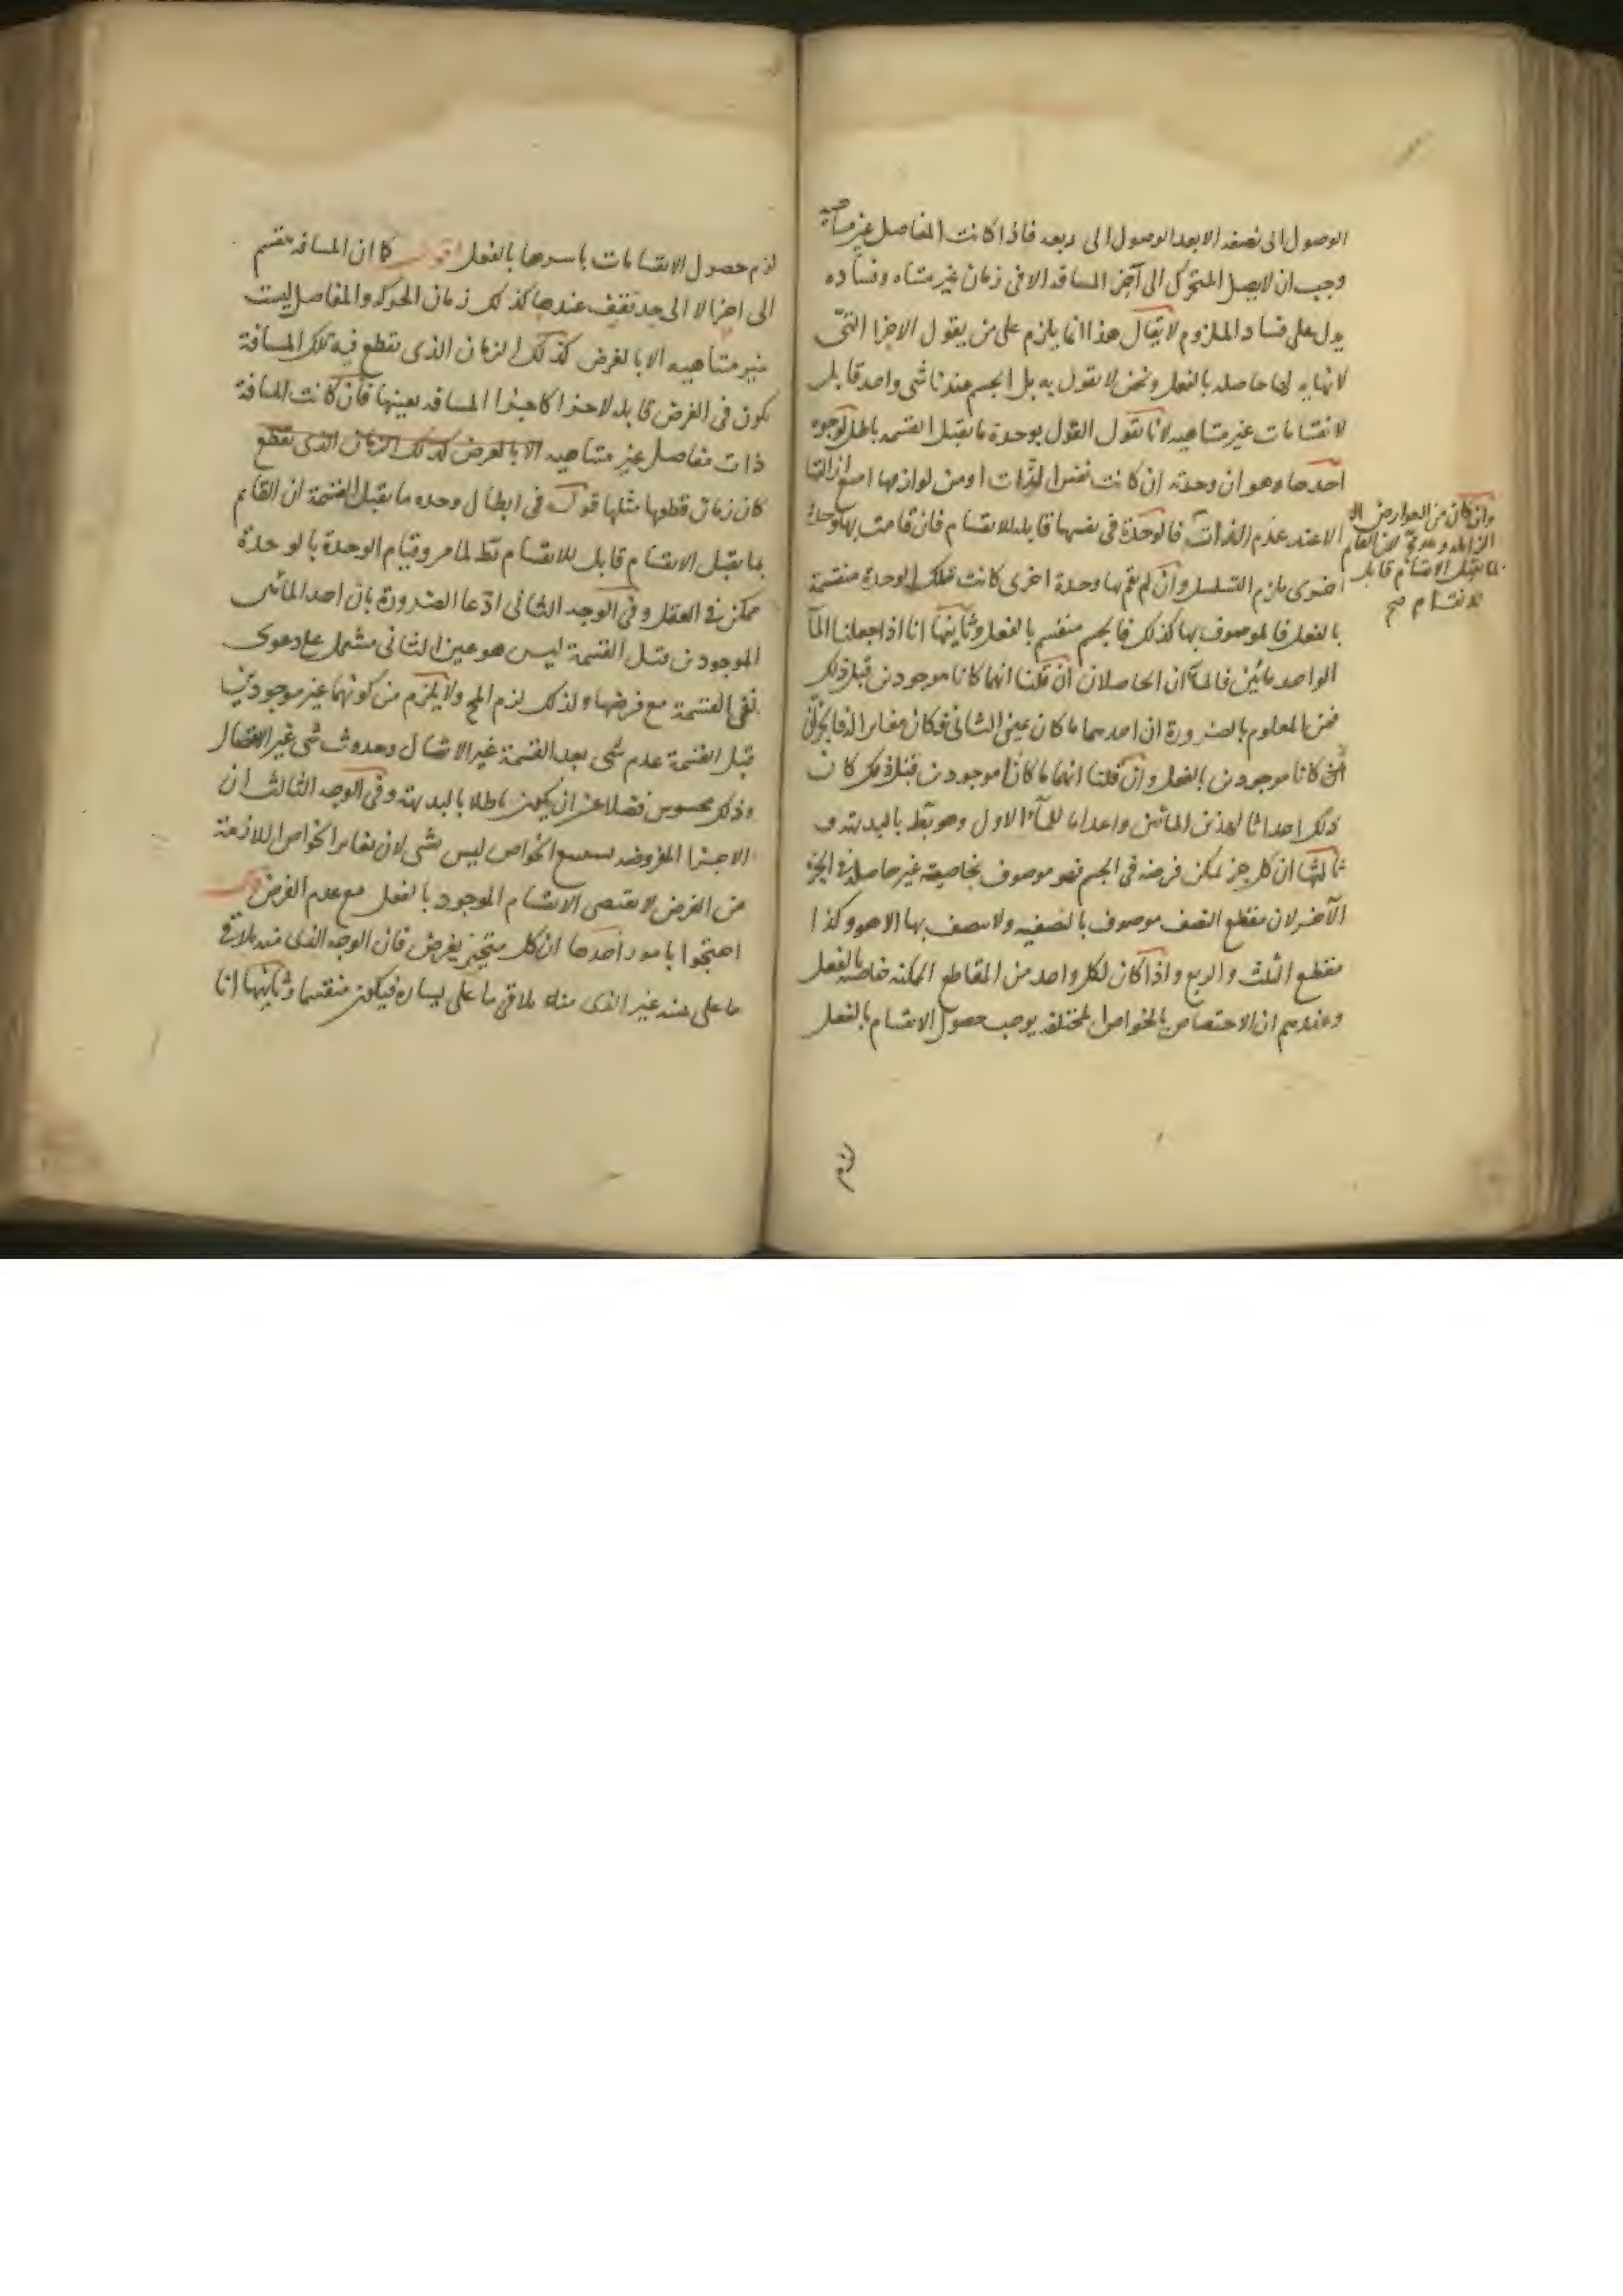 الوصول الى نصفه الا بعد الوصول الى ربعه فاذا كانت المفاصل غير متناهية
وجب ان لا يصل المتحرك الى آخر المسافه الا فى زمان غير متناه وفساده
يدل على فساد الملزوم لا يقال هذا انما يلزم على من يقول الاجزا التى
لا نهايه لها حاصله بالفعل ونحن لا نقول به بل الجسم عندنا شى واحد قابل
لانقسامات غير متناهيه لانا نقول القول بوحدة ما يقبل القسمه باطل لوجوه
احدها وهو ان وحدته ان كانت نفس الذات او من لوازمها امتنع ازالتها
الا عند عدم الذات فالوحدة فى نفسها قابله للانقسام فان قامت بها وحدة
اخرى يلزم التسلسل وان لم يقم بها وحدة اخرى كانت تلك الوحدة منقسمة
بالفعل فالموصوف بها كذلك فالجسم منقسم بالفعل وثانيها انا اذا جعلنا المآ
الواحد مائين فالمآآن الحاصلان ان قلنا انهما كانا موجودين قبل ذلك
فمن المعلوم بالضرورة ان احدهما ما كان عين الثانى فكان مغايرا له
كانا موجودين بالفعل وان قلنا انهما ما كانا موجودين قبل ذلك كان
ذلك احداثا لهذين المائين واعداما للمآء الاول وهو بط بالبديهة و
ثالثها ان كل جز يمكن فرضه فى الجسم فهو موصوف بخاصية غير حاصله فى الجز
الآخر لان مقطع النصف موصوف بالنصفيه ولا يتصف بها الا هو وكذا
مقطع الثلث والربع واذا كان لكل واحد من المقاطع الممكنه خاصة بالفعل
وعندهم ان الاختصاص بالخواص المختلفه يوجب حصول الانقسام بالفعل
وان كان من العوارض
الزايله وهو لان القايم
بما يقبل الانقسام قابل
للانقسام صح
لزم
لزم حصول الانقسامات باسرها بالفعل اقول كما ان المسافه تنقسم
الى اجزا لا الى حد تقف عندها كذلك زمان الحركه والمفاصل ليست
غير متناهيه الا بالفرض كذلك الزمان الذى يقطع فيه تلك المسافة
يكون فى الفرض قابلا لاجزا كاجزا المسافه بعينها فان كانت المسافة
ذات مفاصل غير متناهيه الا بالفرض كذلك الزمان الذى يقطع
كان زمان قطعها مثلها قوله فى ابطال وحده ما يقبل القسمة ان القايم
بما يقبل الانقسام قابل للانقسام بط لما مر وقيام الوحدة بالوحدة
ممكن فى العقل وفى الوجه الثانى ادّعا الضرورة بان احد المائين
الموجودين قبل القسمة ليس هو عين الثانى مشتمل على دعوى
نفى القسمة مع فرضها ولذلك لزم المح ولا يلزم من كونهما غير موجودين
قبل القسمة عدم شى بعد القسمة غير الاتصال وحدوث شى غير الانفصال
وذلك محسوس فضلا عن ان يكون باطلا بالبديهة وفى الوجه الثالث ان
الاجزا المفروضه الخواص ليس بشى لان تغاير الخواص اللازمة
من الفرض لا يقتضى الانقسام الموجود بالفعل مع عدم الفرض قال
احتجوا بامور احدها ان كل متحيز يفرض فان الوجه الذى منه يلاقى
ما على يمينه غير الذى منه يلاقى ما على يساره فيكون منقسما وثانيها انا